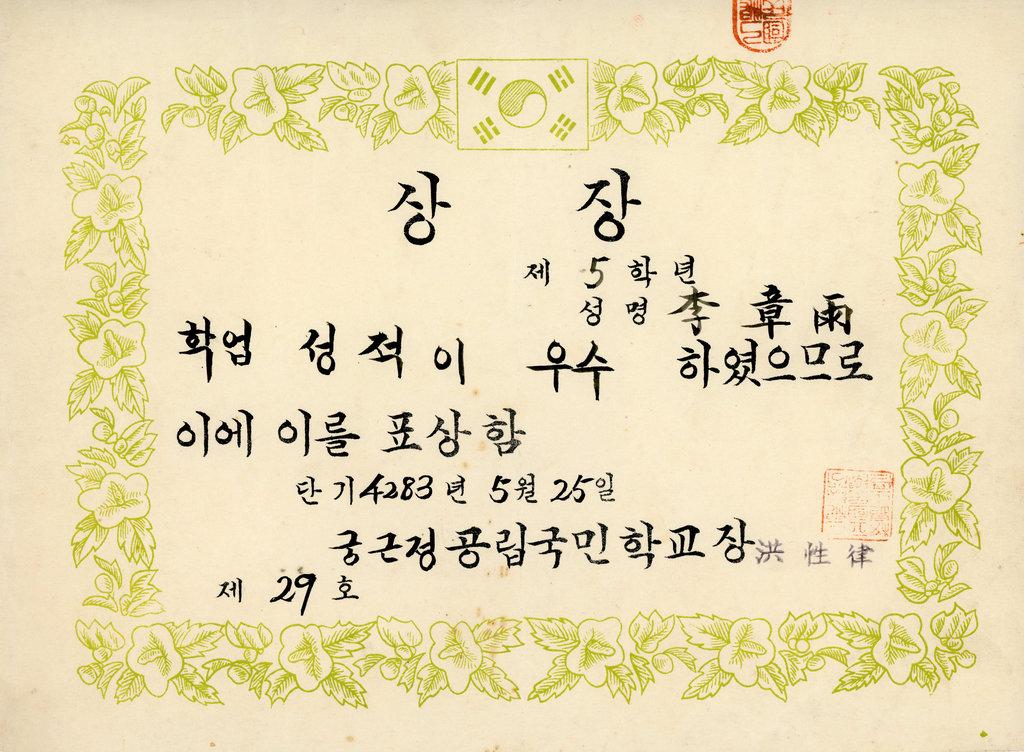 상 장
제 5 학년
성명 李章雨
학업 성적이 우수 하였으므로
이에 이를 표상함
단기 4283년 5월 25일
궁근정공립국민학교장 洪性律
제 29 호